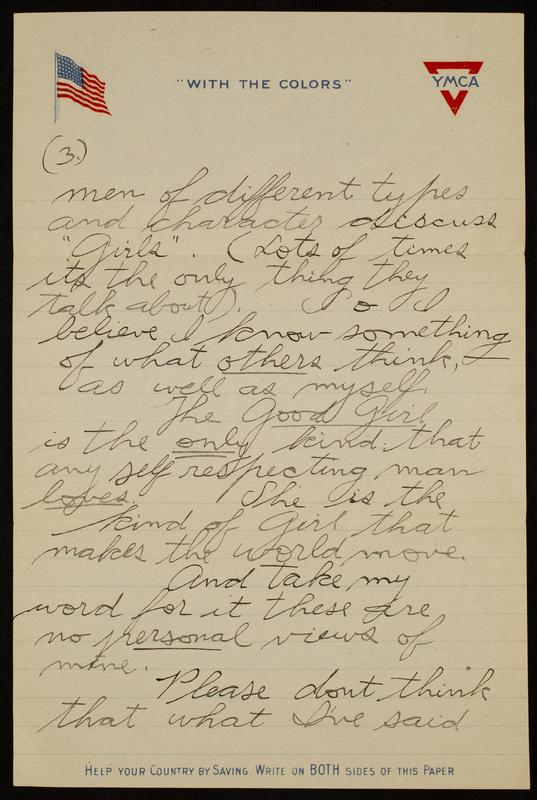 "WITH THE COLORS"
YMCA
(3.)
men of different types
and character discuss
"Girls". (Lots of times
its the only thing they
talk about). So I
believe I know something
of what others think,
as well as myself.
The Good Girl
is the only kind that
any self respecting man
loves. She is the
kind of Girl that
makes the world move.
And take my
word for it these are
no personal views of
mine.
Please dont think
that what I've said
HELP YOUR COUNTRY BY SAVING. WRITE ON BOTH SIDES OF THIS PAPER